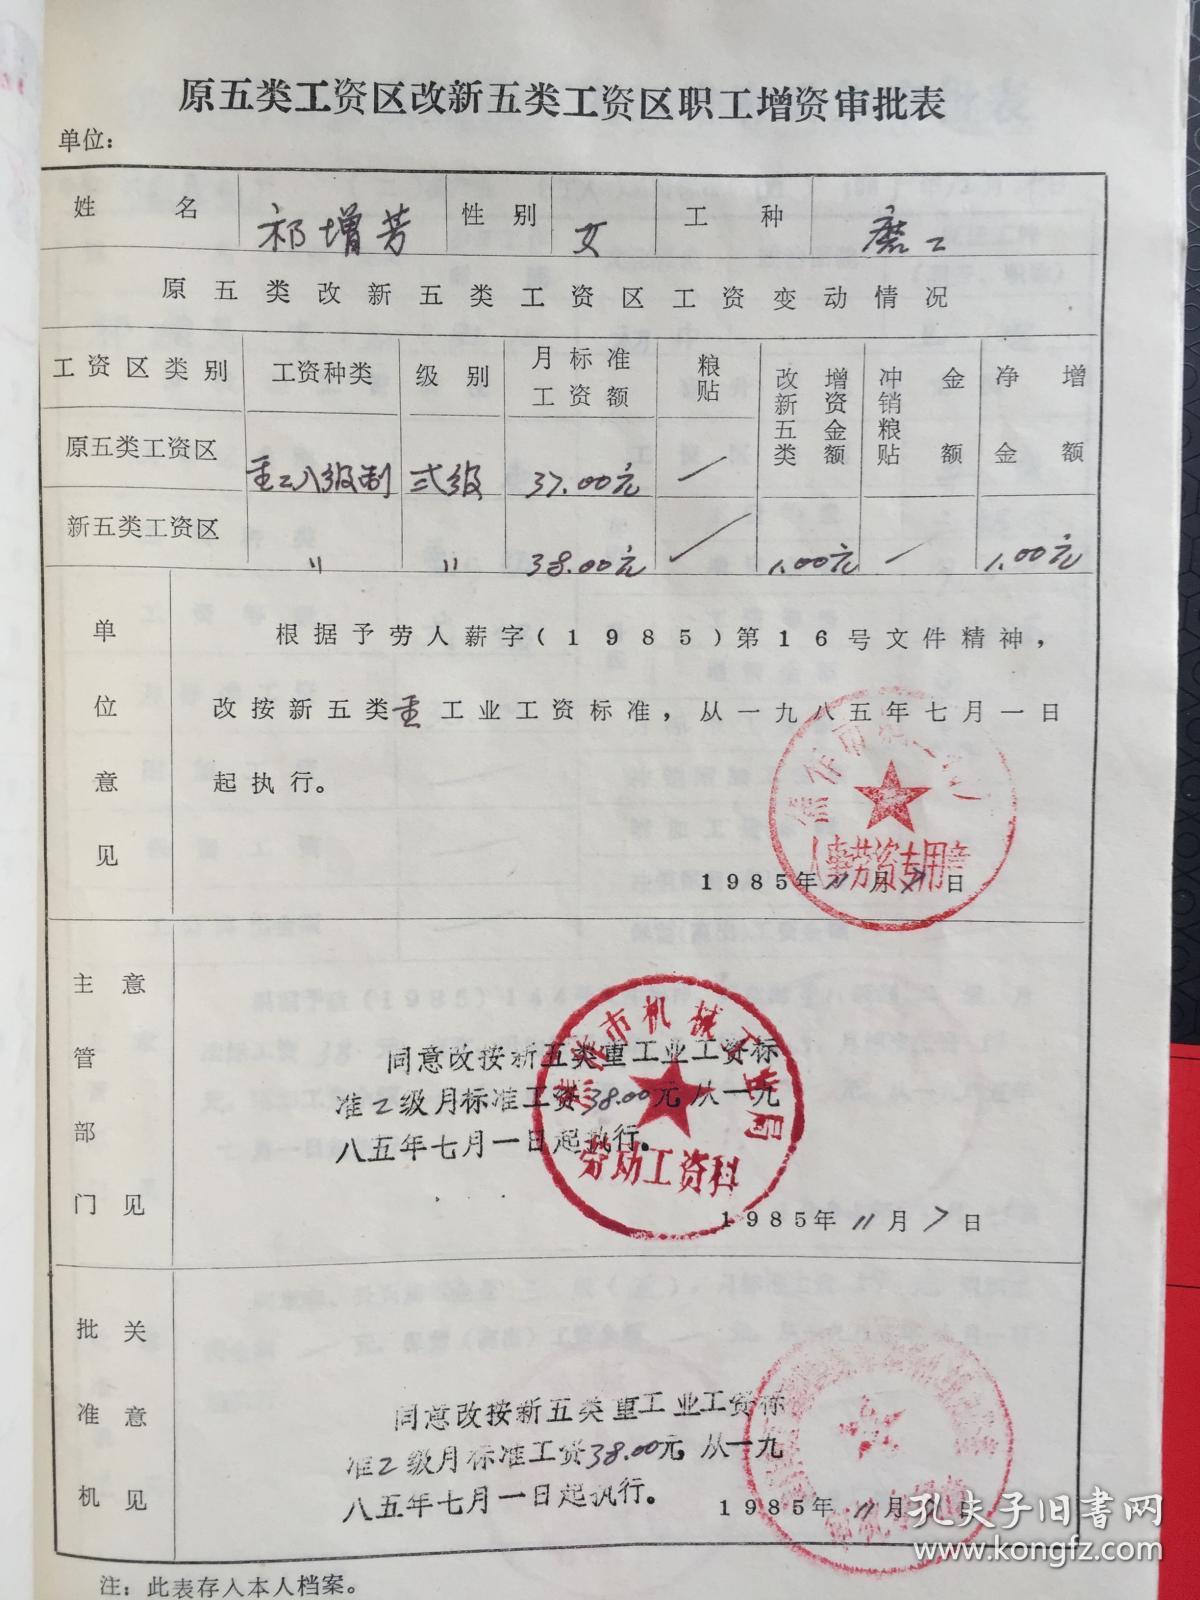 原五类工资区改新五类工资区职工增资审批表
单位：
姓名 祁增芳 性别 女 工种 磨工
原五类改新五类工资区工资变动情况
工资区类别 工资种类 级别 月标准工资额 粮贴 改新五类增资金额 冲销粮贴金额 净增金额
原五类工资区 重工八级制 弍级 37.00元 /
新五类工资区 〃 〃 38.00元 / 1.00元 / 1.00元
单位意见
根据予劳人薪字（1985）第16号文件精神，
改按新五类重工业工资标准，从一九八五年七月一日
起执行。
人事劳资专用章
1985年11月7日
主管部门意见
市机械工业局
同意改按新五类重工业工资标
准2级月标准工资38.00元 从一九
八五年七月一日起执行。
劳动工资科
1985年11月7日
批准机关意见
同意改按新五类重工业工资标
准2级月标准工资38.00元 从一九
八五年七月一日起执行。
1985年11月 日
孔夫子旧书网
www.kongfz.com
注：此表存入本人档案。